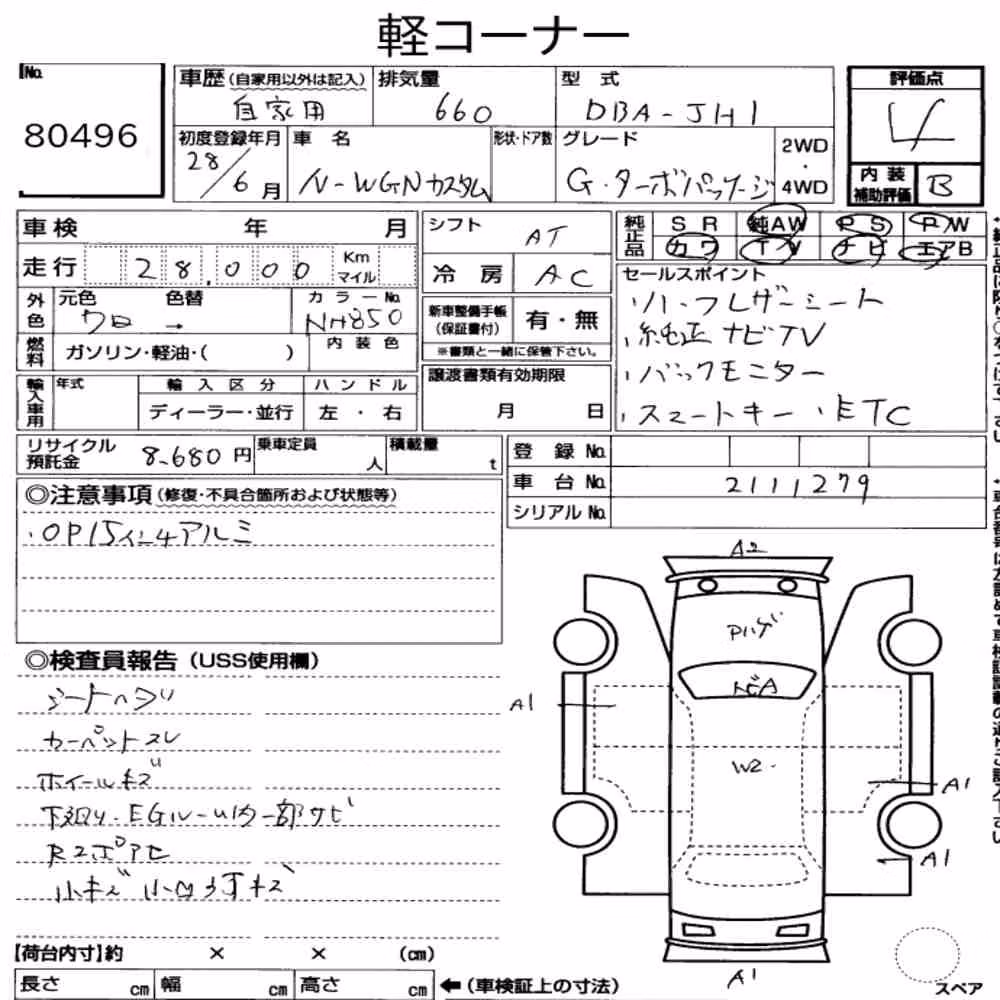 軽コーナー
No.
80496
車歴(自家用以外は記入)
自家用
排気量
660
型 式
DBA-JH1
評価点
4
初度登録年月
28/6月
車 名
N-WGNカスタム
形状・ドア数
グレード
G・ターボパッケージ
2WD
・
4WD
内 装
補助評価
B
車検 年 月
走行 28,000 Km
マイル
シフト AT
冷 房 AC
純正品
SR 純AW PS PW
カワ TV ナビ エアB
外色
元色 色替
クロ →
カラーNo.
NH850
燃料
ガソリン・軽油・( )
内 装 色
新車整備手帳
(保証書付)
有・無
※書類と一緒に保管下さい。
セールスポイント
・ハーフレザーシート
・純正ナビTV
・バックモニター
・スマートキー ・ETC
輸入車用
年式
輸 入 区 分
ディーラー・並行
ハ ン ド ル
左 ・ 右
譲渡書類有効期限
月 日
リサイクル
預託金
8,680 円
乗車定員
人
積載量
t
登 録 No.
車 台 No. 2111279
シリアル No.
◎注意事項(修復・不具合箇所および状態等)
・OP15インチアルミ
A2
◎検査員報告(USS使用欄)
シートヘコリ
カーペットスレ
ホイールキズ
下廻り・EGルーム内一部サビ
小キズ
A1
W2
A1
A1
A1
【荷台内寸】約 × × (cm)
長さ cm
幅 cm
高さ cm
←(車検証上の寸法)
スペア